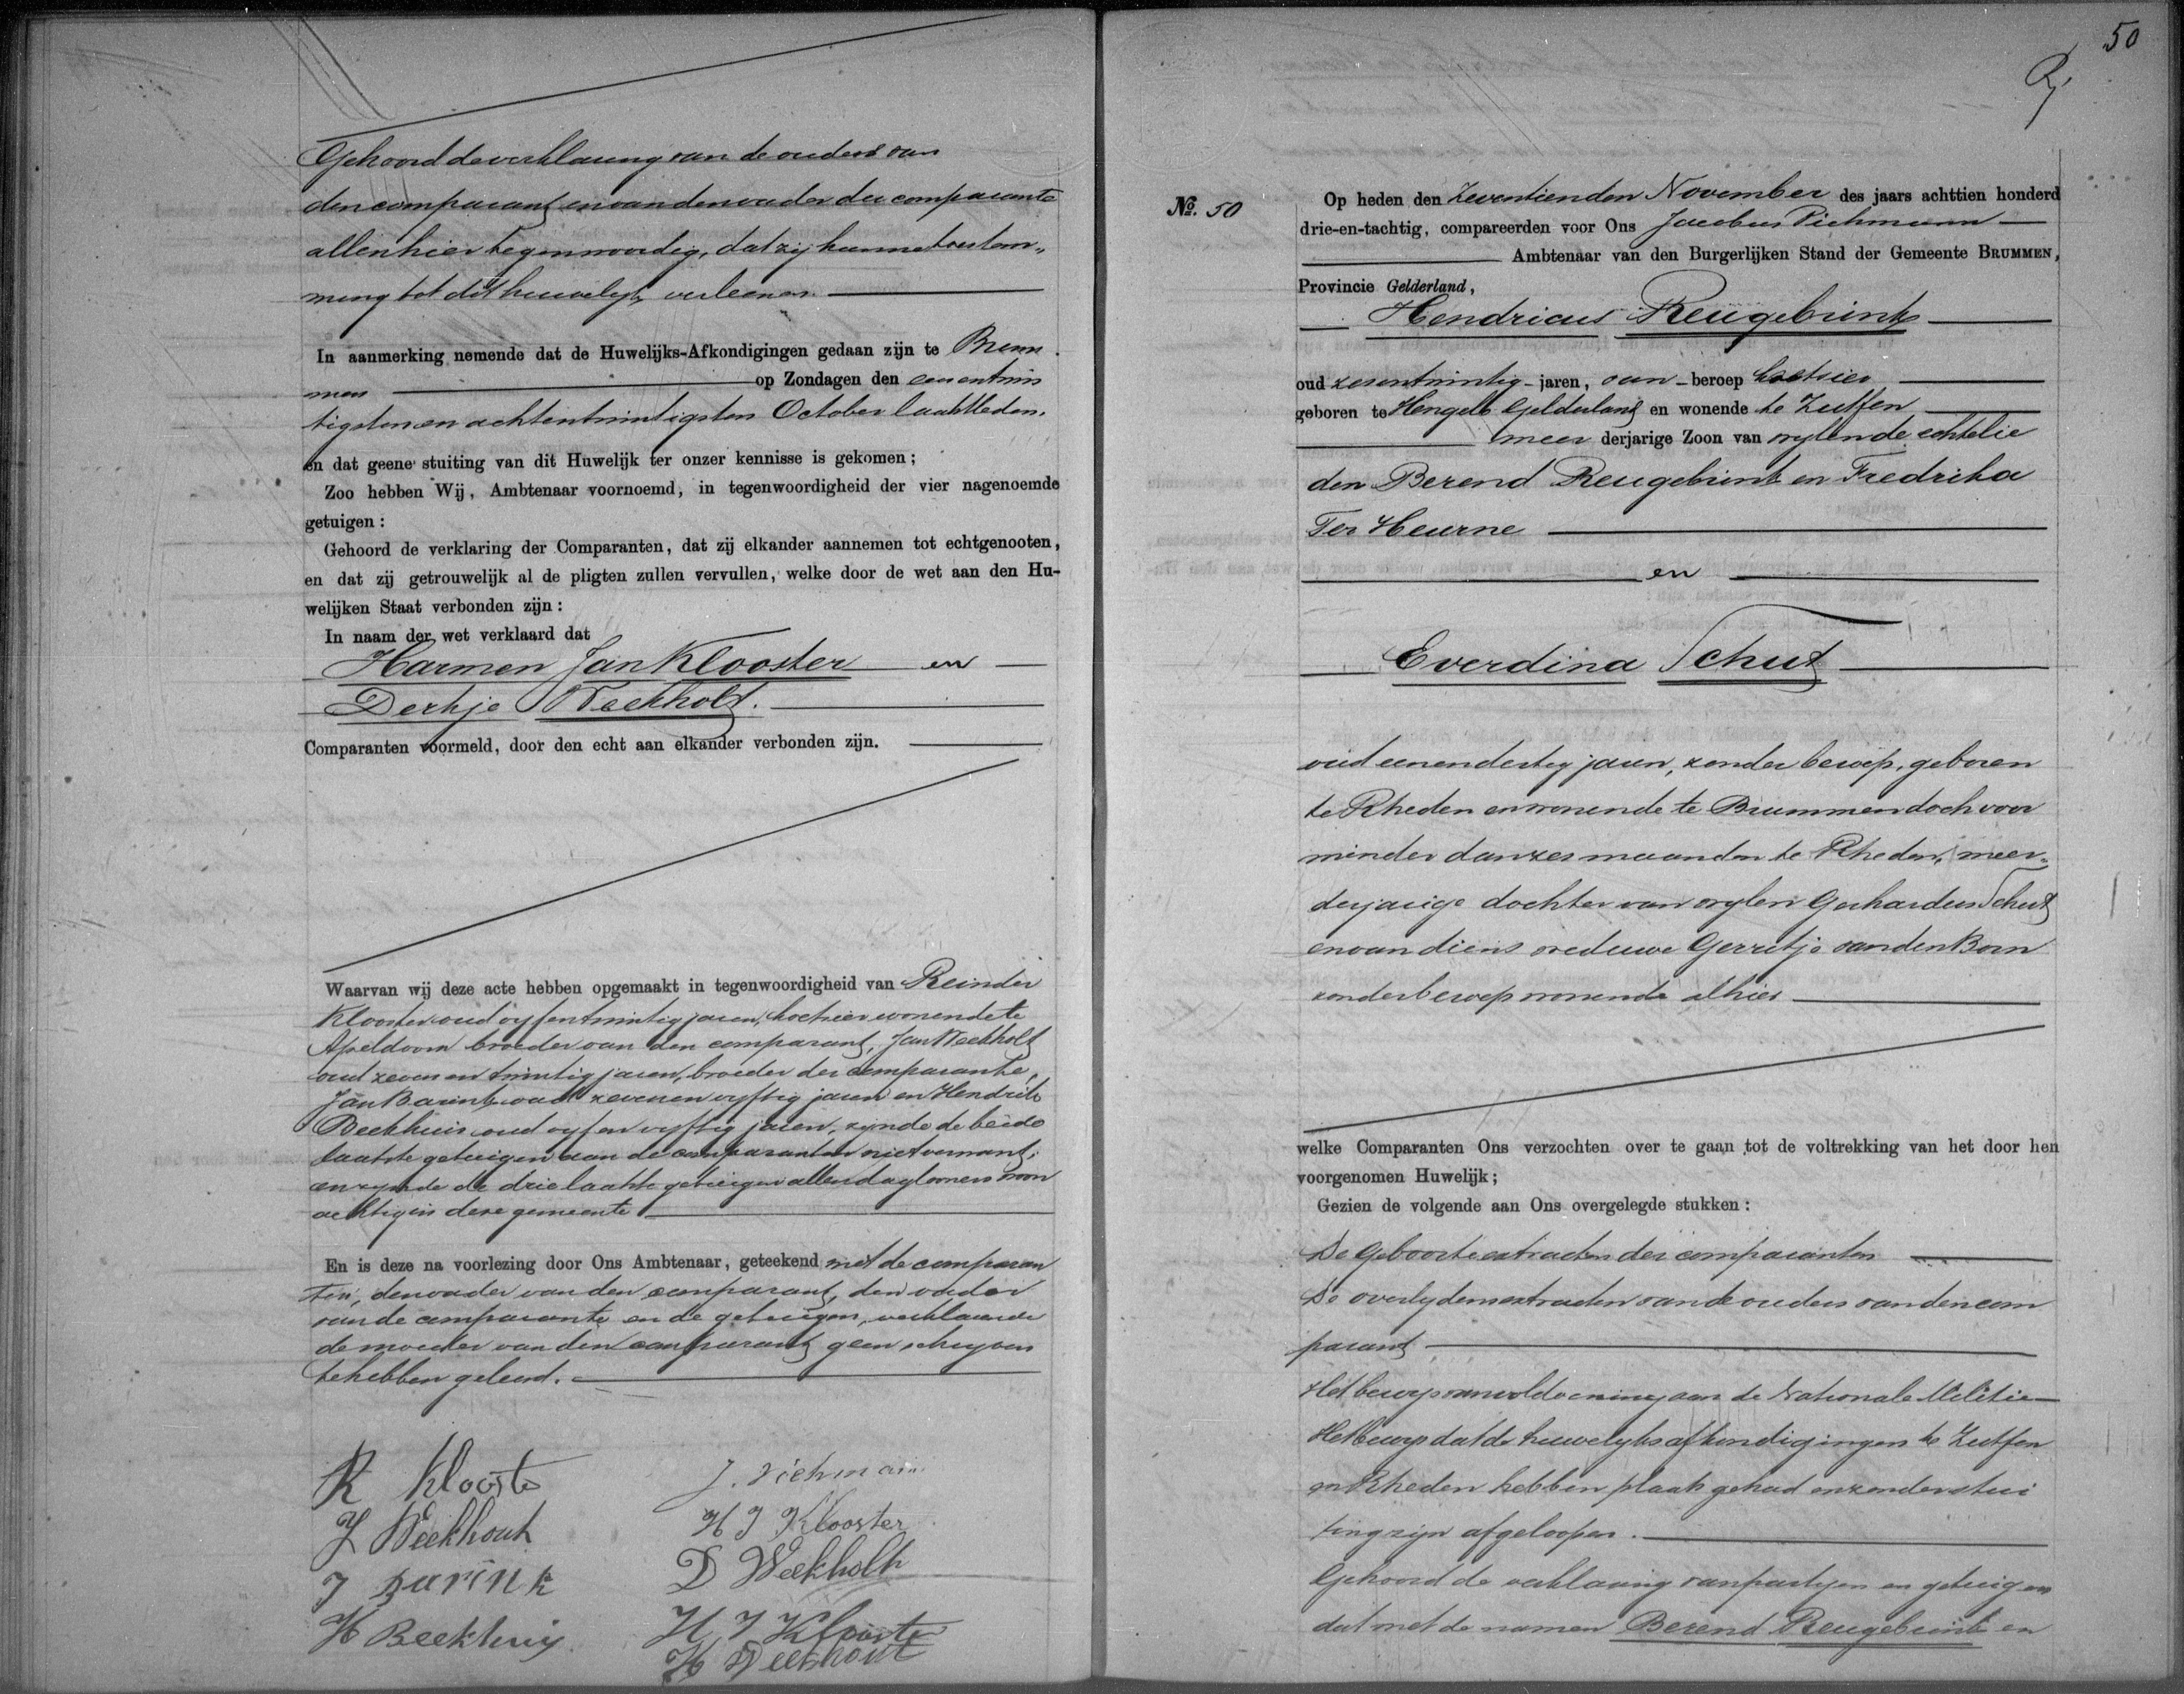 Gehoord de verklaring van de ouders van
den comparant en van den vader der comparante
allen hier tegenwoordig, dat zij hunne toestem„
ming tot dit huwelijk verleenen.
In aanmerking nemende dat de Huwelijks-Afkondigingen gedaan zijn te Brum
men op Zondagen den een en twin
tigsten en achtentwintigsten October laatstleden.
en dat geene stuiting van dit Huwelijk ter onzer kennisse is gekomen;
Zoo hebben Wij, Ambtenaar voornoemd, in tegenwoordigheid der vier nagenoemde
getuigen:
Gehoord de verklaring der Comparanten, dat zij elkander aannemen tot echtgenooten,
en dat zij getrouwelijk al de pligten zullen vervullen, welke door de wet aan den Hu-
welijken Staat verbonden zijn:
In naam der wet verklaard dat
Harmen Jan Klooster en
Derkje Weekholt.
Comparanten voormeld, door den echt aan elkander verbonden zijn.
Waarvan wij deze acte hebben opgemaakt in tegenwoordigheid van Reinder
Klooster oud vyfentwintig jaren, koetsier wonende te
Apeldoorn broeder van den comparant, Jan Weekholt
oud zeven en twintig jaren, broeder der comparante,
Jan Barink oud zevenenvyftig jaren en Hendrik
Beekhuis oud vyfenvyftig jaren, zynde de beide
laatste getuigen aan de comparanten niet vermant;
en zynde de drie laatste getuigen allen dagloners woon
achtig in deze gemeente
En is deze na voorlezing door Ons Ambtenaar, geteekend met de comparan
ten, den vader van den comparant, den vader
van de comparante en de getuigen, verklarende
de moeder van den comparant geen schryven
te hebben geleerd.
R Klooste
J. Pichmann
J Weekhout
H J Klooster
J Barink
D Weekholt
H Beekhuis
H J Klooster
H Weekhout
50
№. 50
Op heden den Zeventienden November des jaars achttien honderd
drie-en-tachtig, compareerden voor Ons Jacobus Pichmann
Ambtenaar van den Burgerlijken Stand der Gemeente BRUMMEN,
Provincie Gelderland,
Hendricus Reugebrink
oud zesentwintig jaren, van beroep koetsier
geboren te Hengelo Gelderland en wonende te Zutfen
meer derjarige Zoon van wylen de echtelie
den Berend Reugebrink en Fredrika
Ter Heurne
en
Everdina Schut
oud eenendertig jaren, zonder beroep, geboren
te Rheden en wonende te Brummen doch voor
minder dan zes maanden te Rheden, meer„
derjarige dochter van wylen Gerhardus Schut
en van diens weduwe Gerritje van den Born
zonder beroep wonende alhier
welke Comparanten Ons verzochten over te gaan tot de voltrekking van het door hen
voorgenomen Huwelijk;
Gezien de volgende aan Ons overgelegde stukken:
De Geboorteextracten der comparanten
De overlydensextracten van de ouders van den com
parant
Het bewys van voldoening aan de Nationale Militie
Het bewys dat de huwelyksafkondigingen te Zutfen
en Rheden hebben plaats gehad en zonder stui
ting zijn afgeloopen.
Gehoord de verklaring van partyen en getuigen
dat met de namen Berend Reugebrink en